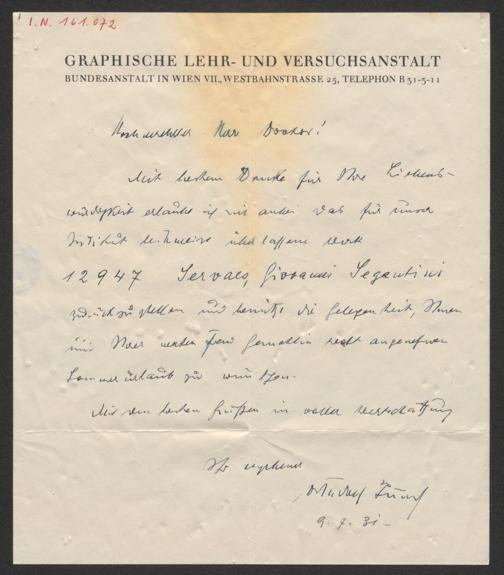 I.N. 161.072
GRAPHISCHE LEHR- UND VERSUCHSANSTALT
BUNDESANSTALT IN WIEN VII., WESTBAHNSTRASSE 25, TELEPHON B 31-5-11
Hochverehrter Herr Doctor!
Mit bestem Danke für Ihre Liebens-
würdigkeit erlaube ich mir anbei das für unser
Institut leihweise überlassene Werk
12947 Servaes, Giovanni Segantini
zurückzustellen und benütze die Gelegenheit, Ihnen
und Ihrer werten Frau Gemahlin recht angenehmen
Sommerurlaub zu wünschen.
Mit den besten Grüßen in voller Wertschätzung
Ihr ergebener
9. 7. 31 -